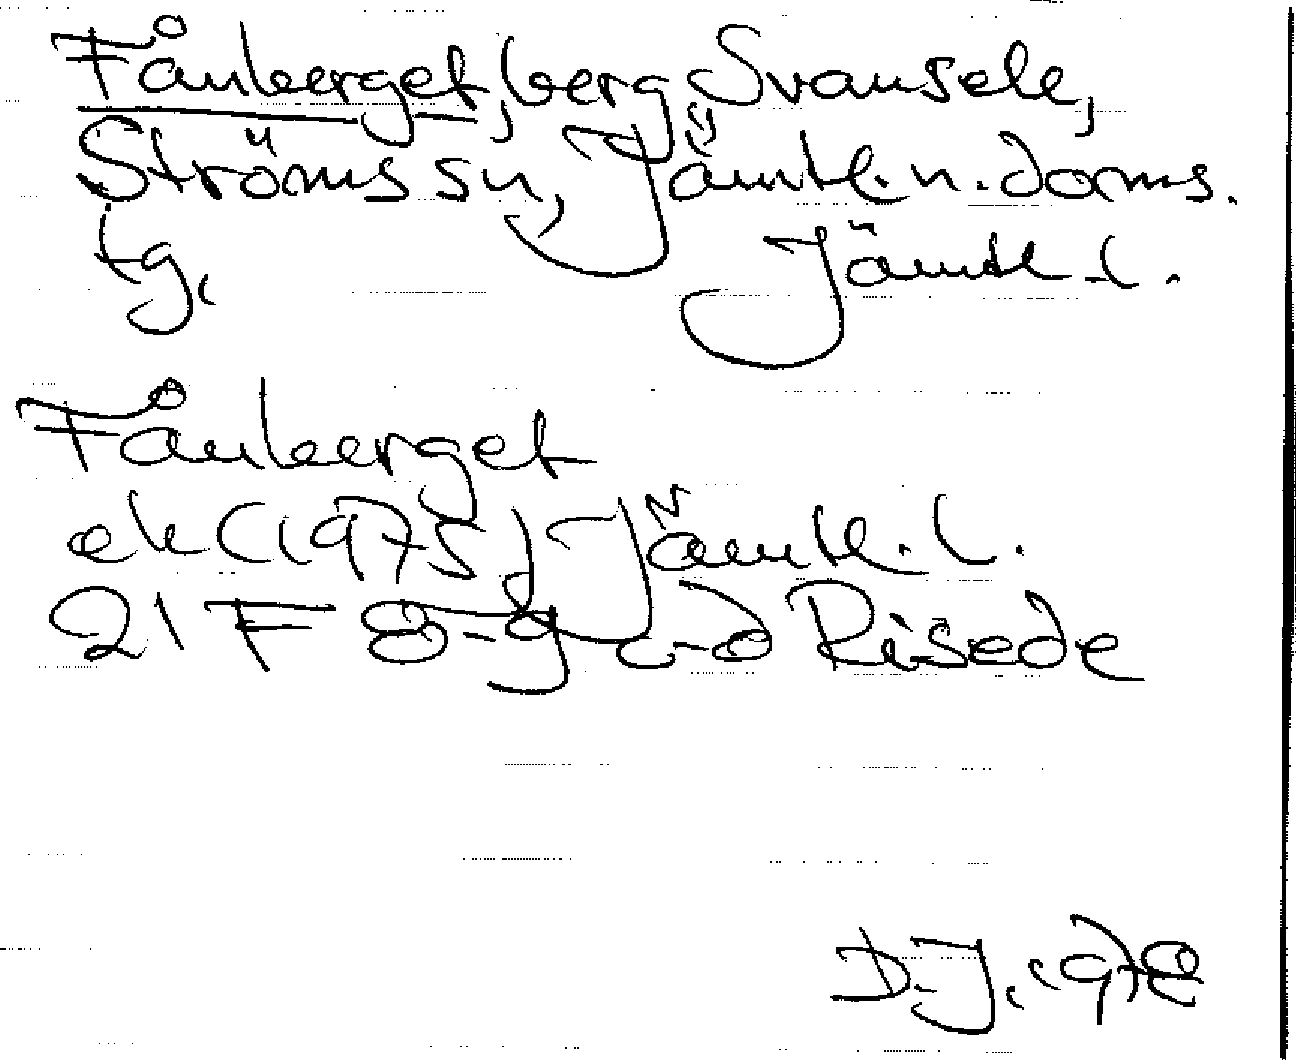 Fånberget, berg, Svansele,
Ströms sn, Jämtl. n. doms.
tg, Jämtl. l.
Fånberget
ek (1975) Jämtl. l.
21 F 8-9 c-d Risede
D.J. 1978